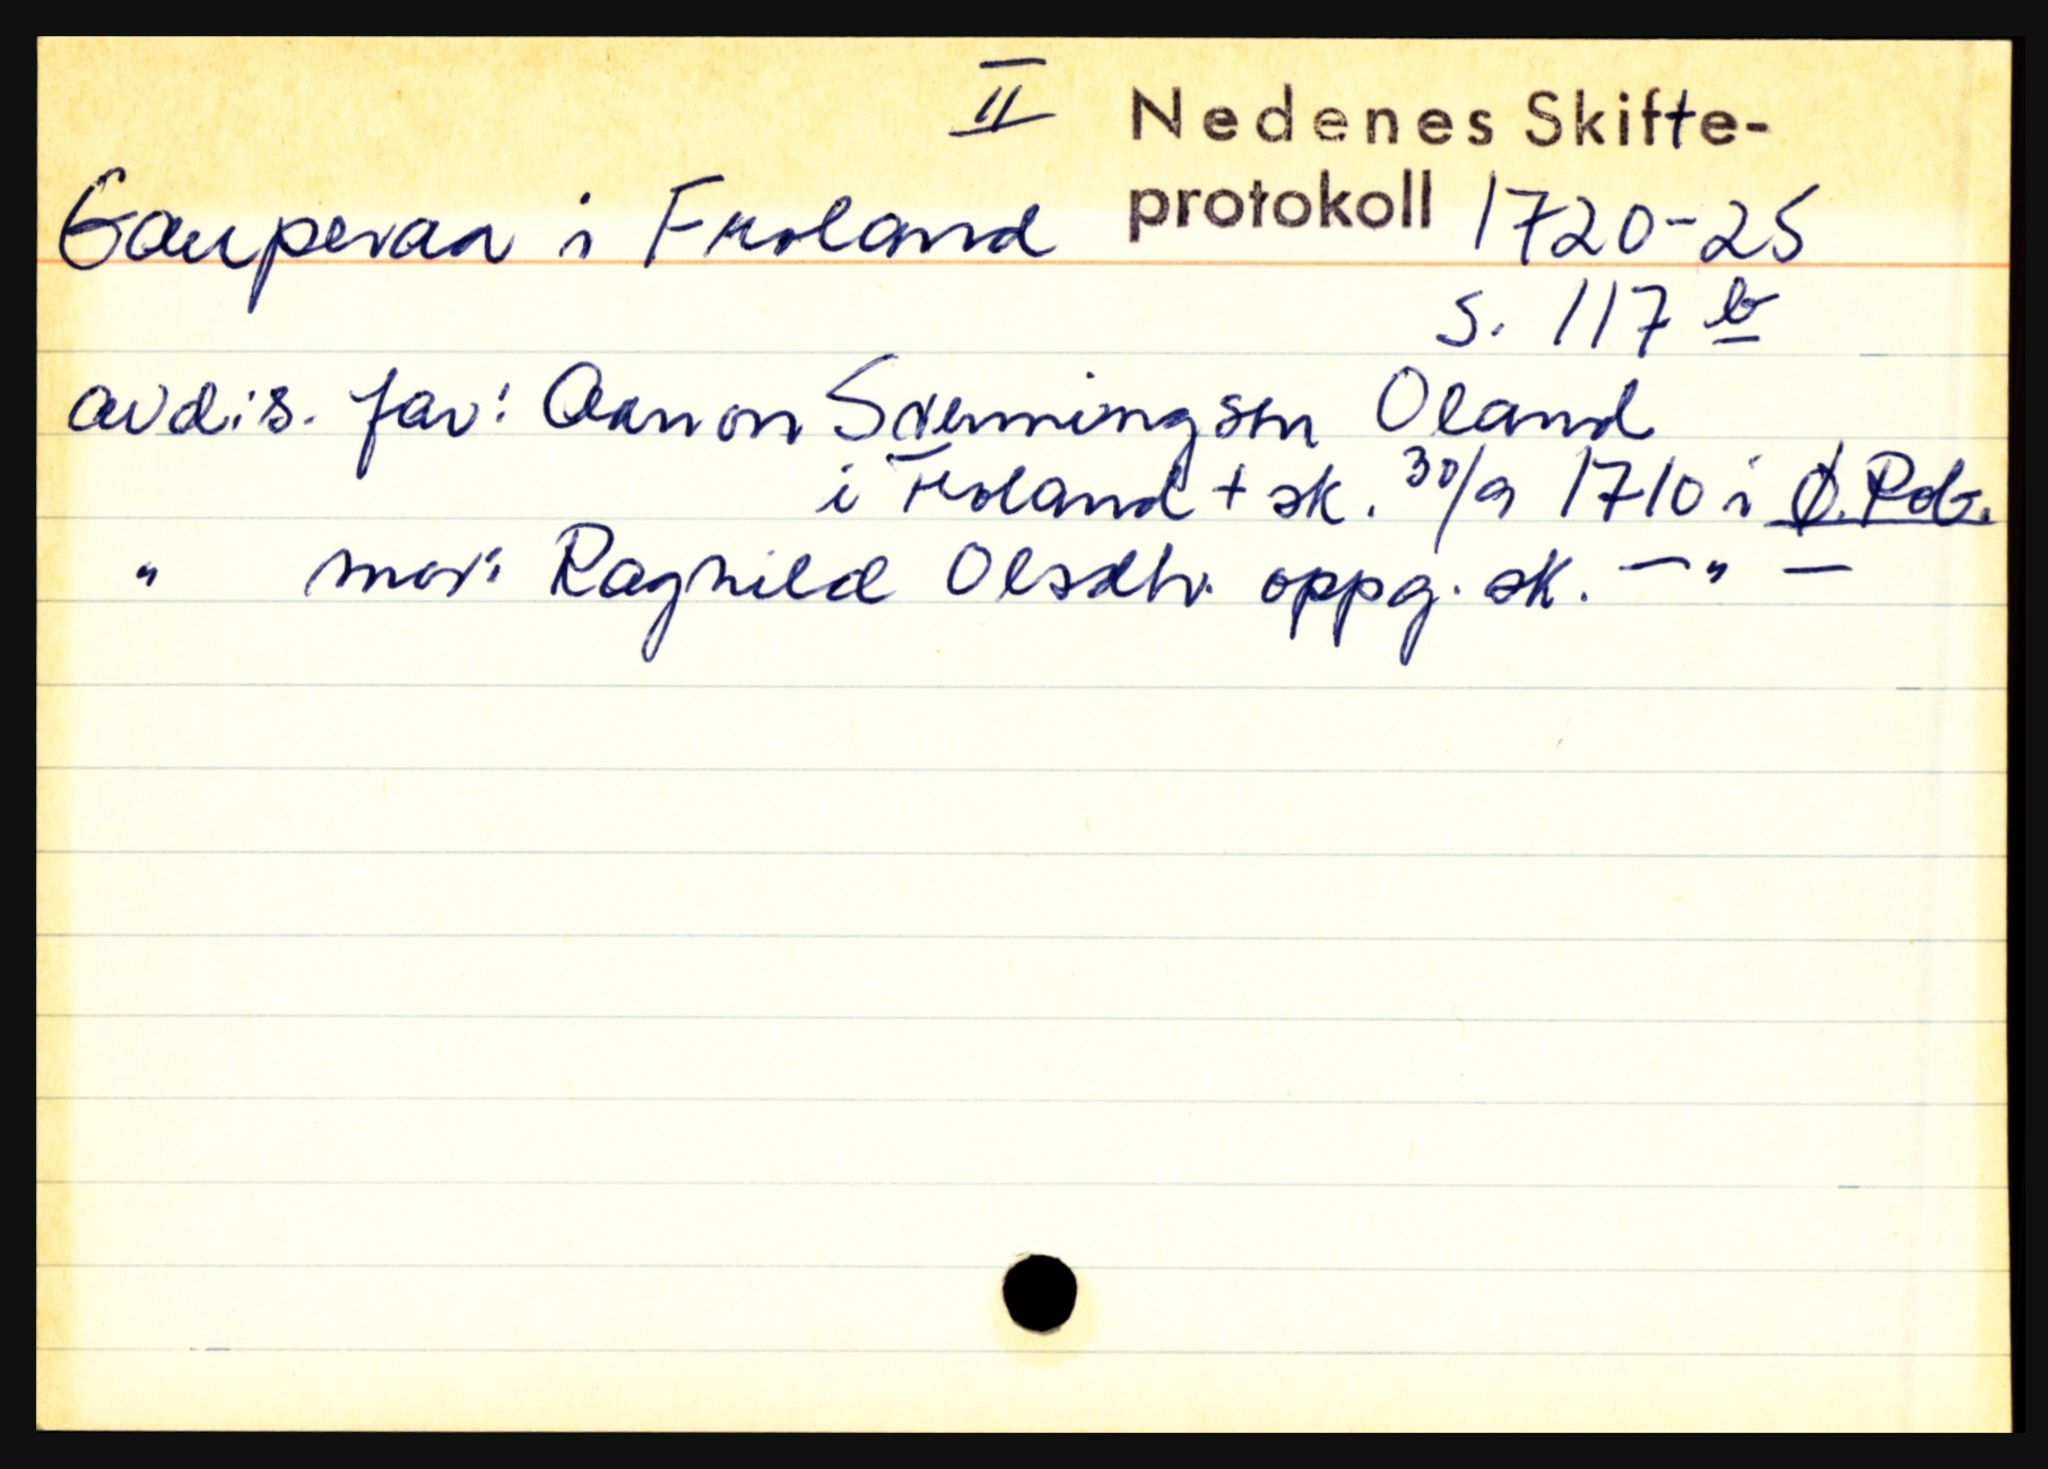 II Nedenes Skifte-
Gauperaa i Froland protokoll 1720-25
S. 117 b
avdis. far: Aanon Svenningsen Oland
i Froland + sk. 30/9 1710 i Ø. Rdb.
" mor: Ragnild Olsdtr. oppg. sk. — " —